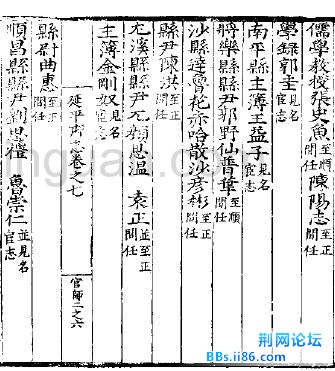 儒學教授張史魚至順間任 陳陽志至正間任
學録郭圭見名宦志
南平縣主簿王益子見名宦志
將樂縣縣尹邪野仙普華至順間任
沙縣達魯花赤哈散沙彥彬至正間任
縣尹陳洪至正間任
尤溪縣縣尹元顔思溫 袁正並至正間任
主簿金剛奴見名宦志
延平府志卷之七 官師二之六
縣尉曲惠至正間任
順昌縣縣尹劉思禮 魯崇仁並見名宦志
荆网论坛
BBs.ii86.com